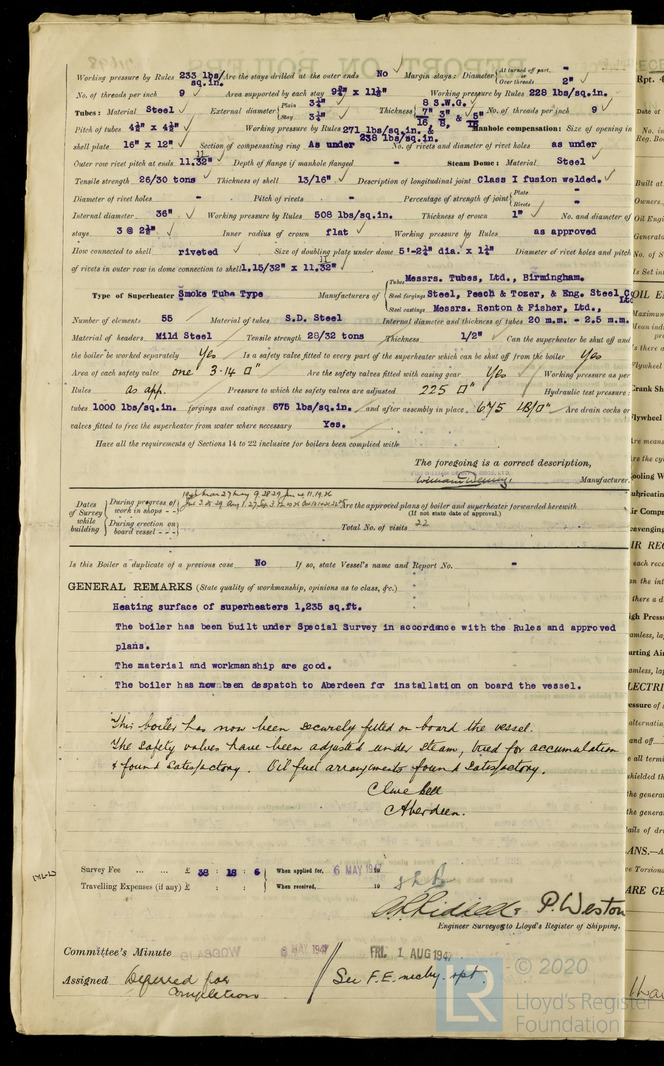 Working pressure by Rules 233 lbs/sq.in. Are the stays drilled at the outer ends No Margin stays: Diameter { At turned off part, - or Over threads 2"
No. of threads per inch 9 Area supported by each stay 9¾" x 11½" Working pressure by Rules 228 lbs/sq.in.
Tubes: Material Steel External diameter { Plain 3¼" Stay 3¼" Thickness { 8 S.W.G. 7/16" 3/8" & 5/16" No. of threads per inch 9
Pitch of tubes 4½" x 4½" Working pressure by Rules 271 lbs/sq.in. & 238 lbs/sq.in. Manhole compensation: Size of opening in
shell plate 16" x 12" Section of compensating ring As under No. of rivets and diameter of rivet holes as under
Outer row rivet pitch at ends 11.32" Depth of flange if manhole flanged - Steam Dome: Material Steel
Tensile strength 26/30 tons Thickness of shell 13/16" Description of longitudinal joint Class I fusion welded.
Diameter of rivet holes - Pitch of rivets - Percentage of strength of joint { Plate - Rivets -
Internal diameter 36" Working pressure by Rules 508 lbs/sq.in. Thickness of crown 1" No. and diameter of
stays 3 @ 2½" Inner radius of crown flat Working pressure by Rules as approved
How connected to shell riveted Size of doubling plate under dome 5'-2½" dia. x 1¼" Diameter of rivet holes and pitch
of rivets in outer row in dome connection to shell 1.15/32" x 11.32"
Type of Superheater Smoke Tube Type Manufacturers of { Tubes Messrs. Tubes, Ltd., Birmingham.
Steel forgings Steel, Peech & Tozer, & Eng. Steel Co Ltd
Steel castings Messrs. Renton & Fisher, Ltd.,
Number of elements 55 Material of tubes S.D. Steel Internal diameter and thickness of tubes 20 m.m. - 2.5 m.m.
Material of headers Mild Steel Tensile strength 28/32 tons Thickness 1/2" Can the superheater be shut off and
the boiler be worked separately Yes Is a safety valve fitted to every part of the superheater which can be shut off from the boiler Yes
Area of each safety valve one 3.14 □" Are the safety valves fitted with easing gear Yes Working pressure as per
Rules as app. Pressure to which the safety valves are adjusted 225 □" Hydraulic test pressure:
tubes 1000 lbs/sq.in. forgings and castings 675 lbs/sq.in. and after assembly in place 675 LB/□" Are drain cocks or
valves fitted to free the superheater from water where necessary Yes.
Have all the requirements of Sections 14 to 22 inclusive for boilers been complied with
The foregoing is a correct description,
William Denny Manufacturer.
Dates of Survey while building { During progress of work in shops - -
During erection on board vessel - - -
Are the approved plans of boiler and superheater forwarded herewith
(If not state date of approval.)
Total No. of visits 22
Is this Boiler a duplicate of a previous case No If so, state Vessel's name and Report No. -
GENERAL REMARKS (State quality of workmanship, opinions as to class, &c.)
Heating surface of superheaters 1,235 sq.ft.
The boiler has been built under Special Survey in accordance with the Rules and approved
plans.
The material and workmanship are good.
The boiler has now been despatch to Aberdeen for installation on board the vessel.
This boiler has now been securely fitted on board the vessel.
The safety valves have been adjusted under steam, tried for accumulation
& found satisfactory. Oil fuel arrangements found satisfactory.
Clive Bell
Aberdeen.
Survey Fee ... ... £ 38 : 18 : 6 When applied for, 6 MAY 1947
Travelling Expenses (if any) £ : : When received, 19
P. Weston
Engineer Surveyors to Lloyd's Register of Shipping.
Committee's Minute 6 MAY 1947 FRI. 1 AUG 1947
Assigned Deferred for completion See F.E. mchy. rpt.
© 2020
LR Lloyd's Register Foundation